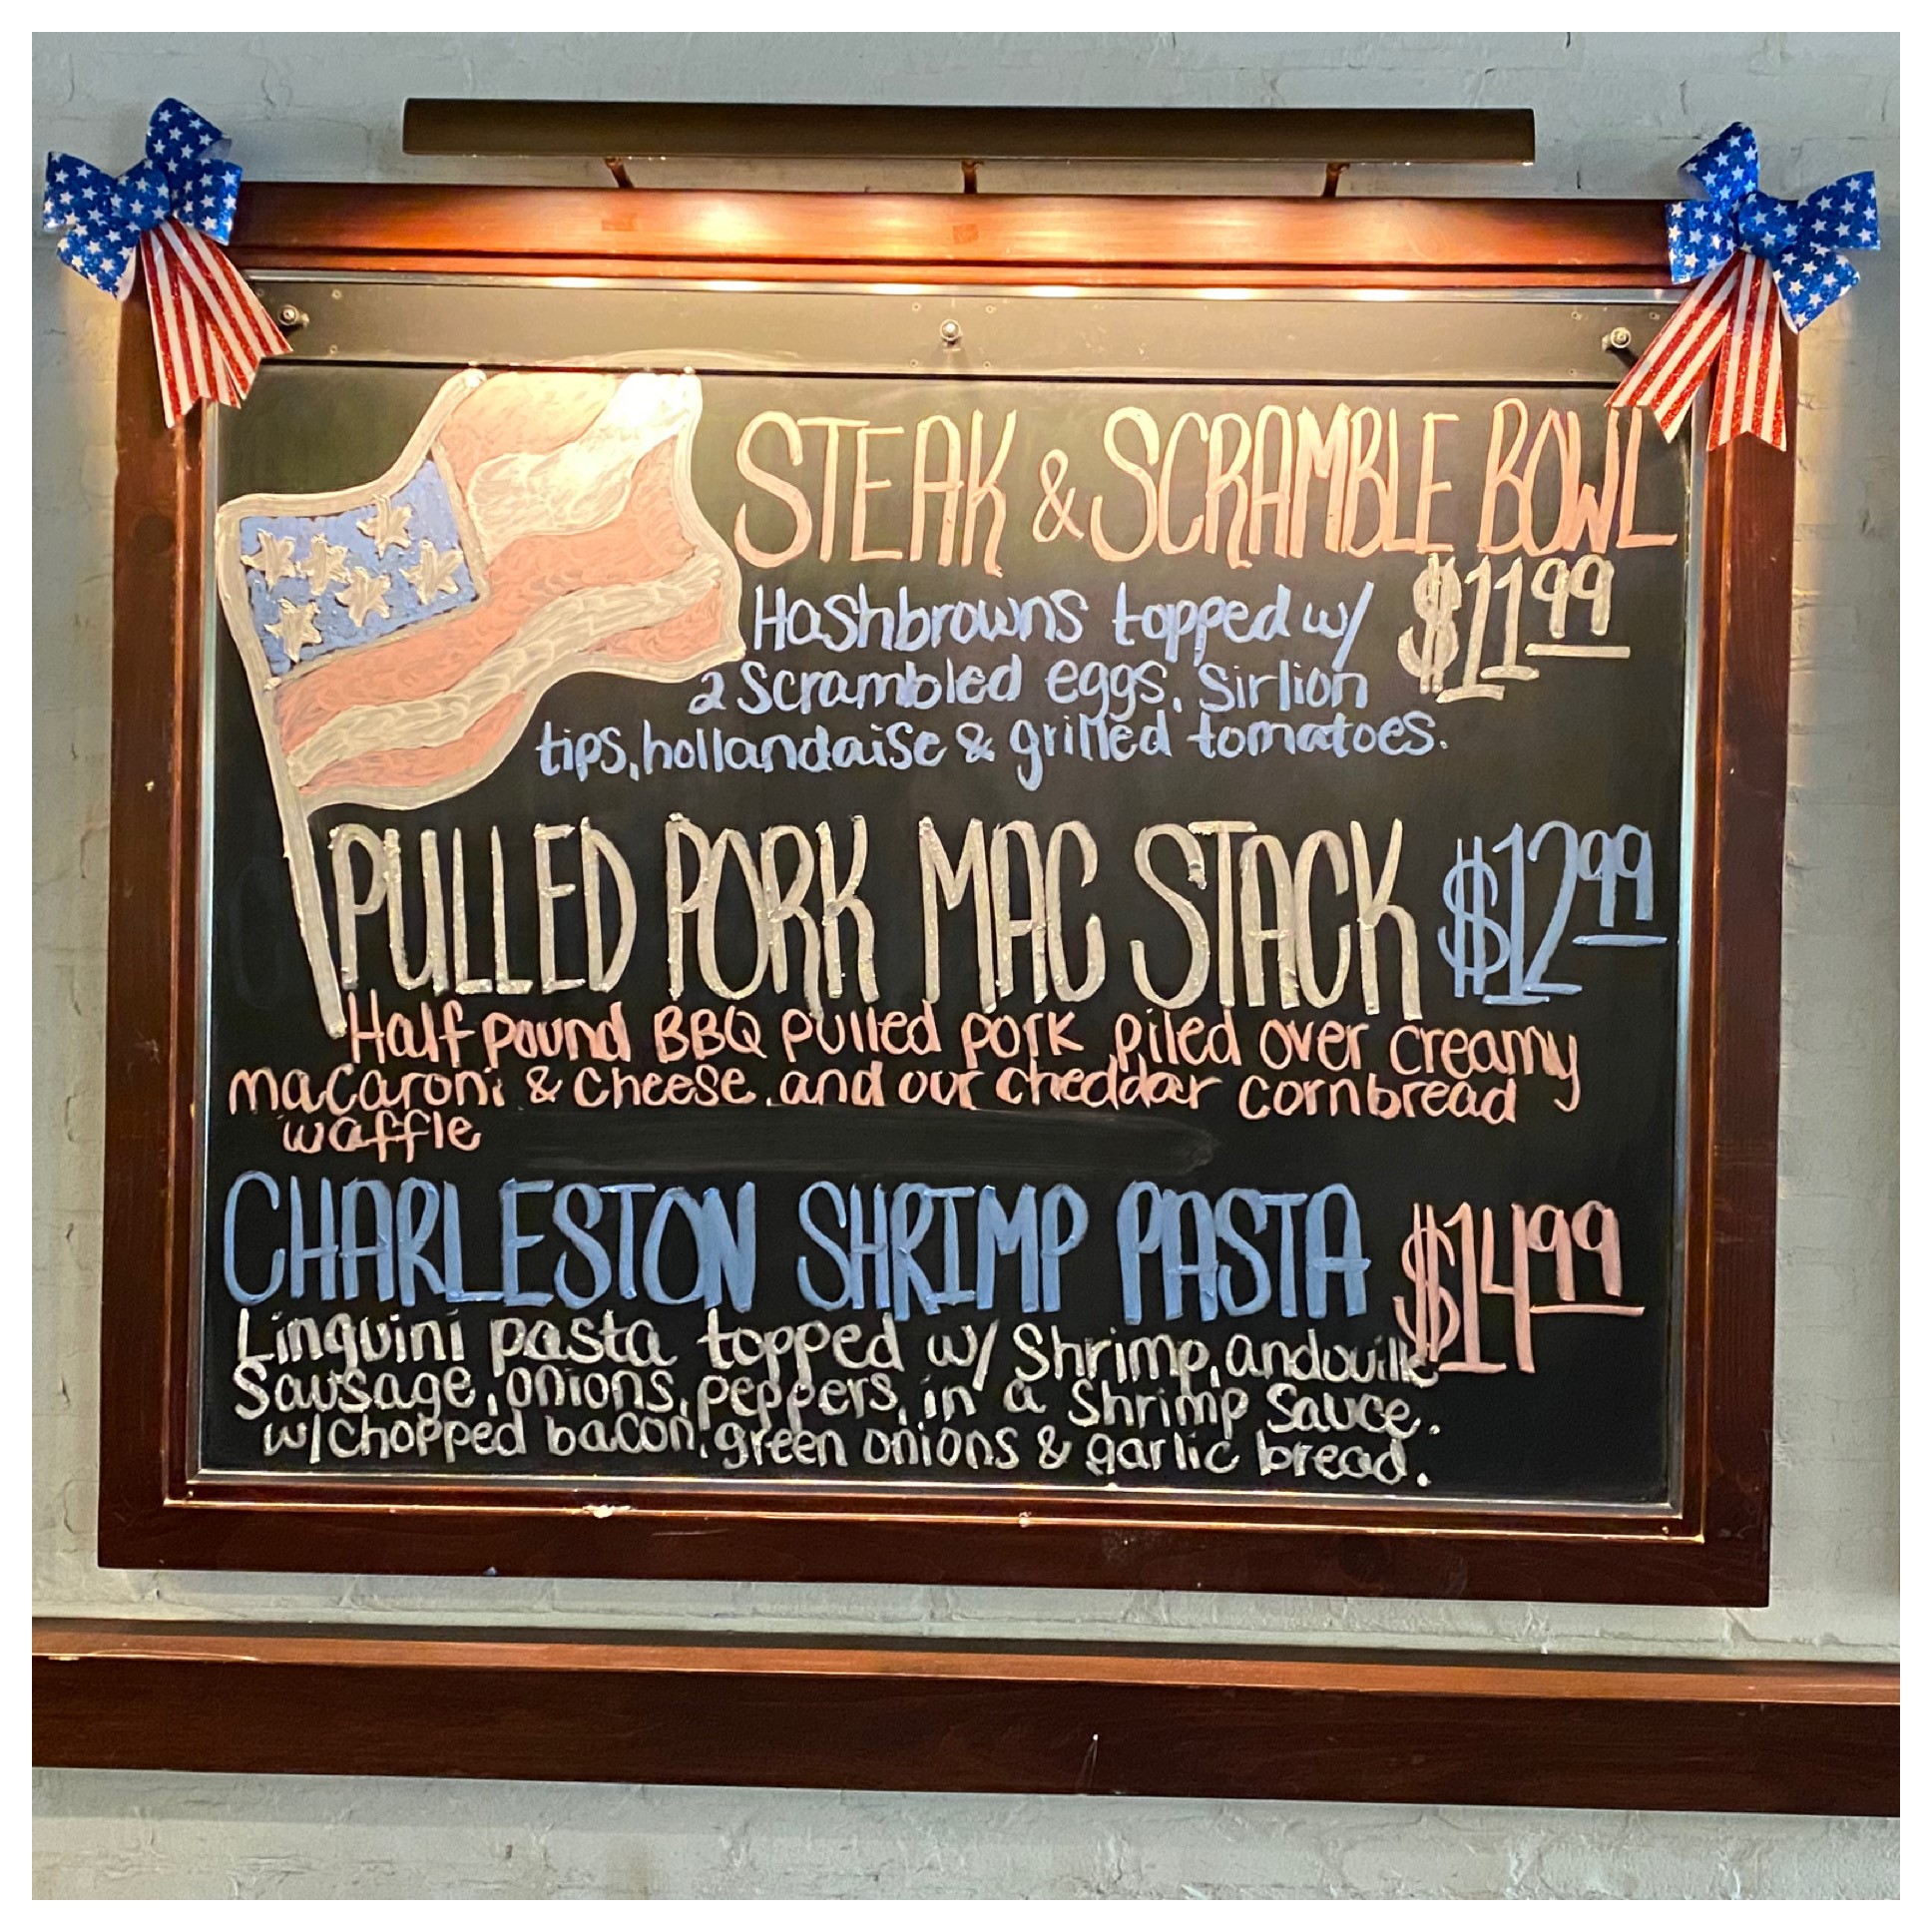 STEAK & SCRAMBLE BOWL
$11.99
Hashbrowns topped w/
2 Scrambled eggs, Sirlion
tips, hollandaise & grilled tomatoes.
PULLED PORK MAC STACK $12.99
Half pound BBQ pulled pork piled over creamy
macaroni & cheese, and our cheddar cornbread
waffle
CHARLESTON SHRIMP PASTA $14.99
Linquini pasta topped w/ Shrimp, andouille
Sausage, onions, peppers, in a Shrimp Sauce.
w/chopped bacon, green onions & garlic bread.